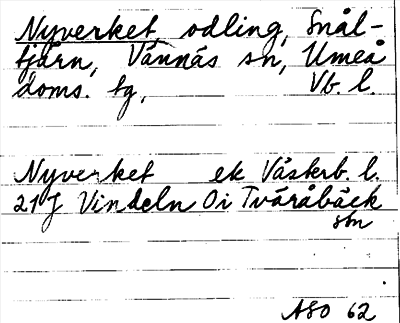 Nyverket, odling, Snål-
tjärn, Vännäs sn, Umeå
doms. tg, Vb. l.
Nyverket ek Västerb. l.
21J Vindeln 0i Tväråbäck
stn
ASO 62